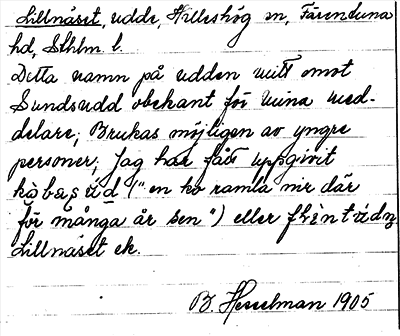 Lillnäset, udde, Hilleshög sn, Färentuna
hd, Sthlm l.
Detta namn på udden mitt emot
Sundsudd obekant för mina med-
delare; Brukas möjligen av yngre
personer; Jag har fått uppgivit
("en ko ramla ner där
för många år sen") eller
Lillnäset ek.
B. Hesselman 1905